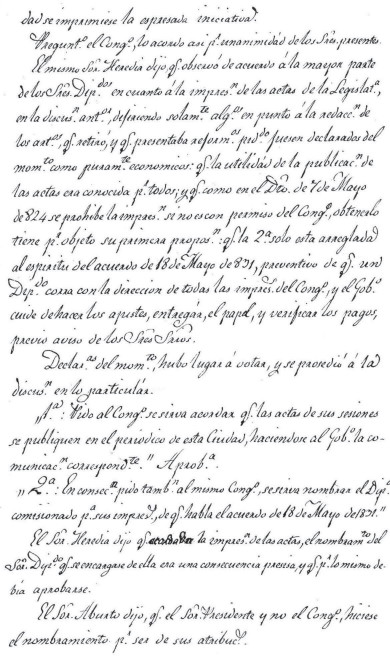 dad se imprimiese la espresada iniciativa.
Pregunt.º el Cong.º, lo acordo asi p.r unanimidad de los Sres. presents.
El mismo Sor. Heredia dijo, q.e observó de acuerdo á la mayor parte
de los Sres. Dep.dos en cuanto á la impres.n de las actas de la Legislat.a,
en la discus.n ant.or, defiriendo solam.te alg.os en punto á la redacc.n de
los art.os, q.e retiró, y q.e presentaba reform.os pid.do fuesen declarados del
mom.to como puram.te economicos: q.e la utilidad de la publicac.n de
las actas era conocida p.r todos; y q.e como en el Dto. de 7 de Mayo
de 824 se prohibe la impres.n si no es con permiso del Cong.º, obtenerlo
tiene p.r objeto su primera propos.n: q.e la 2.a solo esta arreglada
al espiritu del acuerdo de 18 de Mayo de 831, preventivo de q.e un
Dep.do corra con la direccion de todas las impres.s del Cong.º, y el Gob.º
cuide de hacer los ajustes, entregar, el papel, y verificar los pagos,
previo aviso de los Sres. Srios.
Declar.as del mom.to, hubo lugar á votar, y se prosedió á la
discus.n en lo particular.
"1.a: Pido al Cong.º se sirva acordar q.e las actas de sus sesiones
se publiquen en el periodico de esta Ciudad, haciendose al Gob.º la co-
municac.n correspond.te" Aprob.a
"2.a: En consec.a pido tamb.n al mismo Cong.º, se sirva nombrar el Dip.do
comisionado p.a sus impres.s, de q.e habla el acuerdo de 18 de Mayo de 1831."
El Sor. Heredia dijo q.e la impres.n de las actas, el nombram.to del
Sor. Dip.do q.e se encargase de ella era una consecuencia presisa, y q.e p.r lo mismo de-
bía aprobarse.
El Sor. Aburto dijo, q.e el Sor. Presidente y no el Cong.º, hiciese
el nombramiento p.r ser de sus atribuc.s